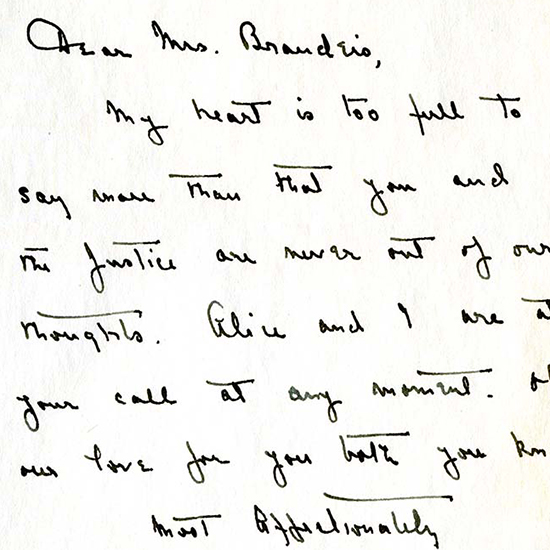 Dear Mrs. Brandeis,
My heart is too full to
say more than that you and
the Justice are never out of our
thoughts. Alice and I are at
your call at any moment. Of
our love for you both you kn
most affectionately